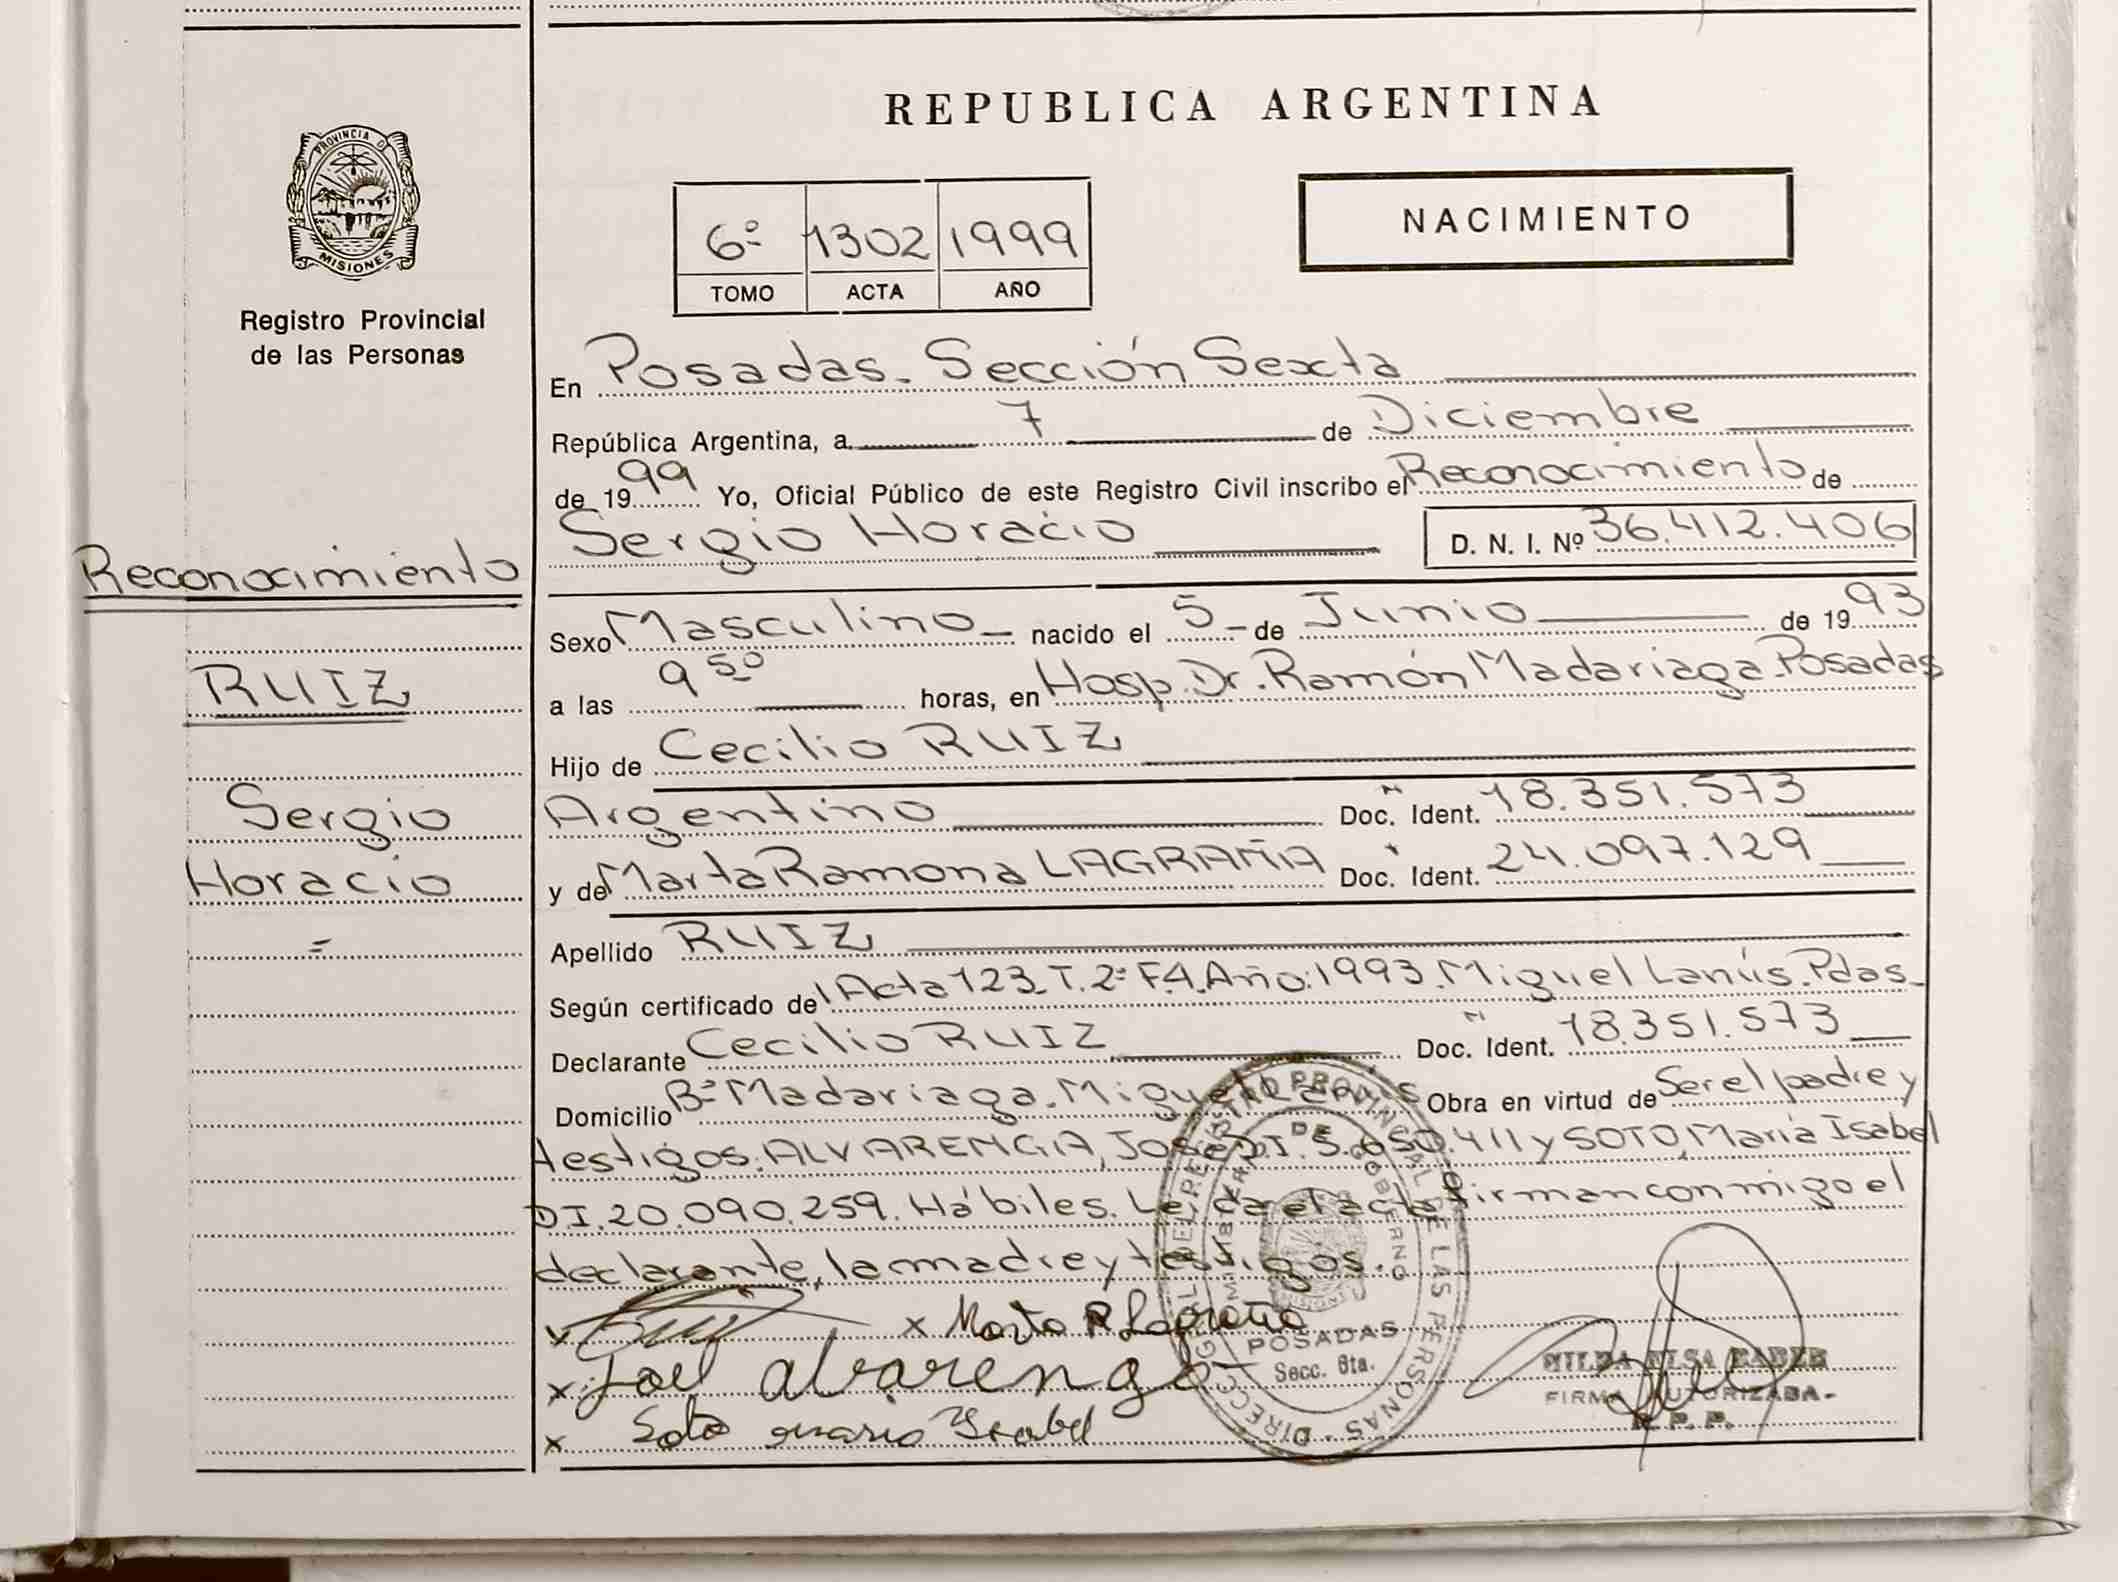 REPUBLICA ARGENTINA
PROVINCIA D
MISIONES
Registro Provincial
de las Personas
6º 1302 1999
TOMO ACTA AÑO
NACIMIENTO
En Posadas. Sección Sexta
República Argentina, a 7 de Diciembre
de 1999 Yo, Oficial Público de este Registro Civil inscribo el Reconocimiento de
Sergio Horacio D. N. I. Nº 36.412.406
Reconocimiento
RUIZ
Sergio
Horacio
=
Sexo Masculino nacido el 5 de Junio de 1993
a las 9 50 horas, en Hosp. Dr. Ramón Madariaga. Posadas
Hijo de Cecilio RUIZ
Argentino Doc. Ident. 18.351.573
y de Marta Ramona LAGRAÑA Doc. Ident. 24.097.129
Apellido RUIZ
Según certificado del Acta 123 T. 2º F.4. Año: 1993. Miguel Lanús. Pdas
Declarante Cecilio RUIZ Doc. Ident. 18.351.573
Domicilio Bº Madariaga. Miguel Lanús Obra en virtud de Ser el padre y
testigos: ALVARENGA, José DI. 5.650.411 y SOTO, María Isabel
DI. 20.090.259. Hábiles. Leída el acta firman conmigo el
declarante, la madre y testigos.
x Marta R Lagraña
x José alvarenga
x Soto maria Ysabel
DIRECCION GRAL DEL REGISTRO PROVINCIAL DE LAS PERSONAS
DE GOBIERNO
MISIONES
POSADAS
Secc. 6ta.
HILDA ELSA
FIRMA AUTORIZADA
R. P. P.